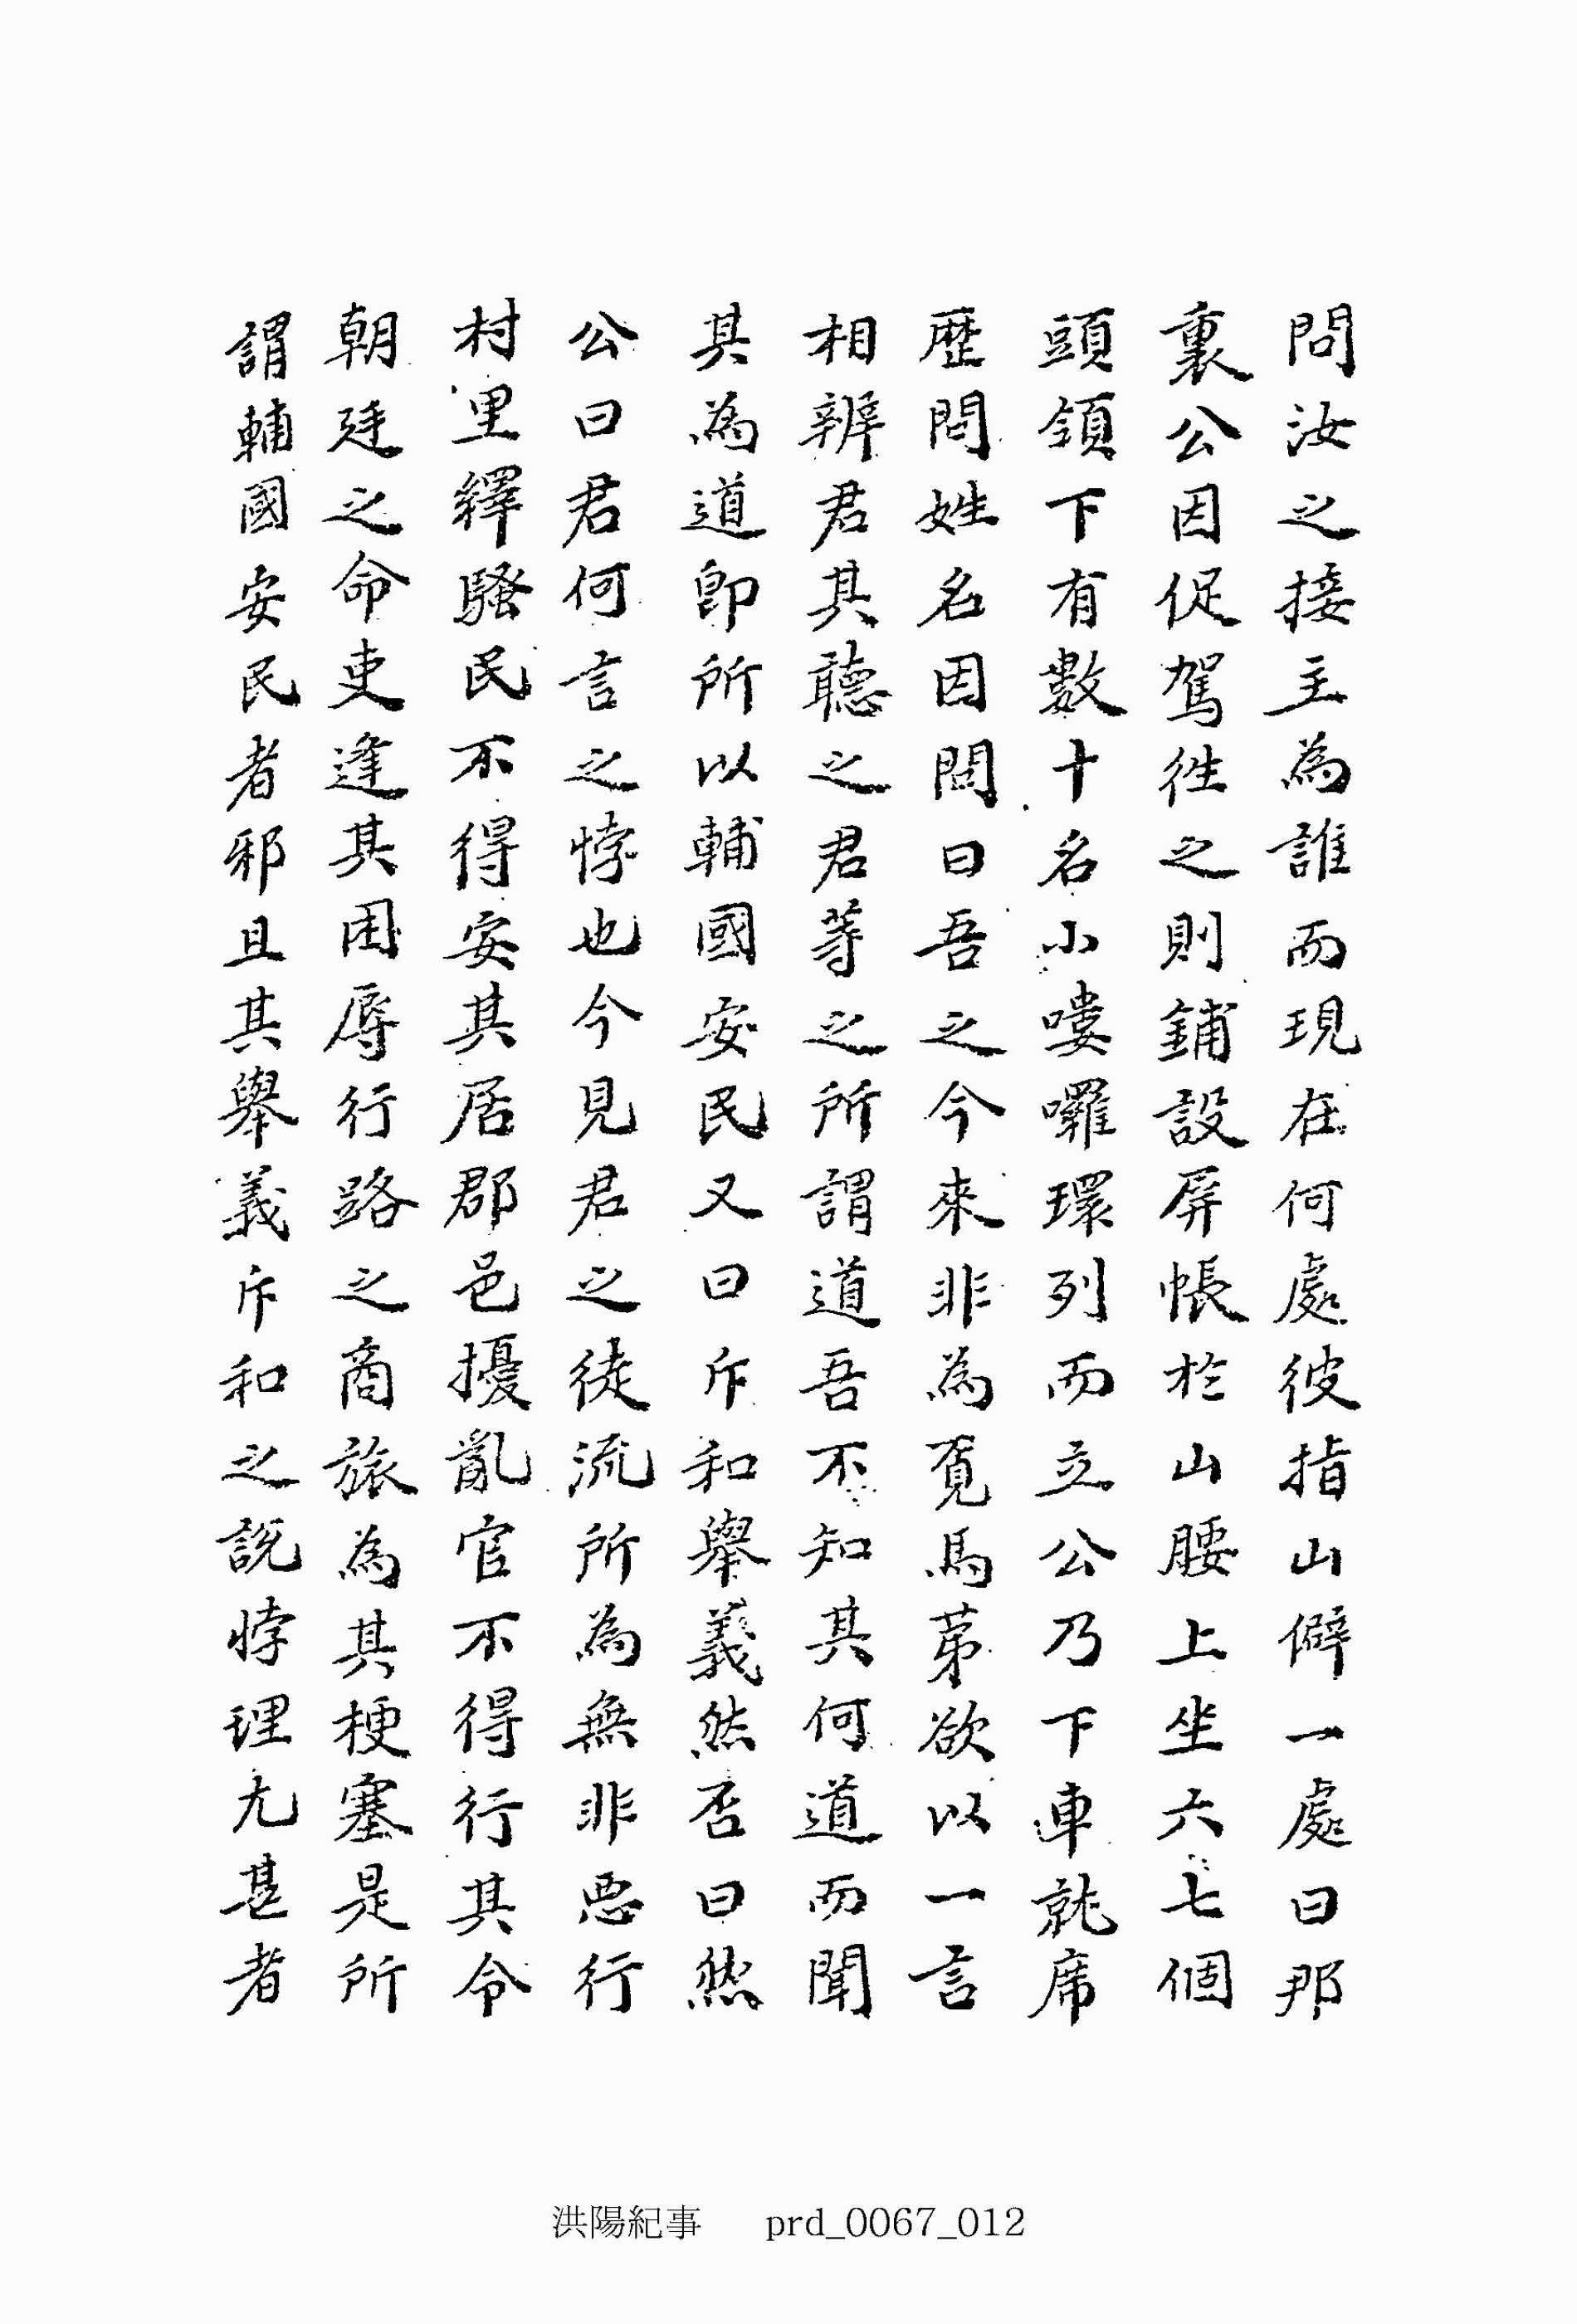 問汝之接主為誰而現在何處彼指山僻一處曰那
裏公因促駕徃之則鋪設屏帳於山腰上坐六七個
頭領下有數十名小嘍囉環列而立公乃下車就席
歷問姓名因問曰吾之今來非為覓馬苐欲以一言
相辨君其聽之君等之所謂道吾不知其何道而聞
其為道卽所以輔國安民又曰斥和擧義然否曰然
公曰君何言之悖也今見君之徒流所為無非惡行
村里繹騷民不得安其居郡邑擾亂官不得行其令
朝廷之命吏逢其困辱行路之商旅為其梗塞是所
謂輔國安民者邪且其擧義斥和之說悖理尤甚者
洪陽紀事 prd_0067_012